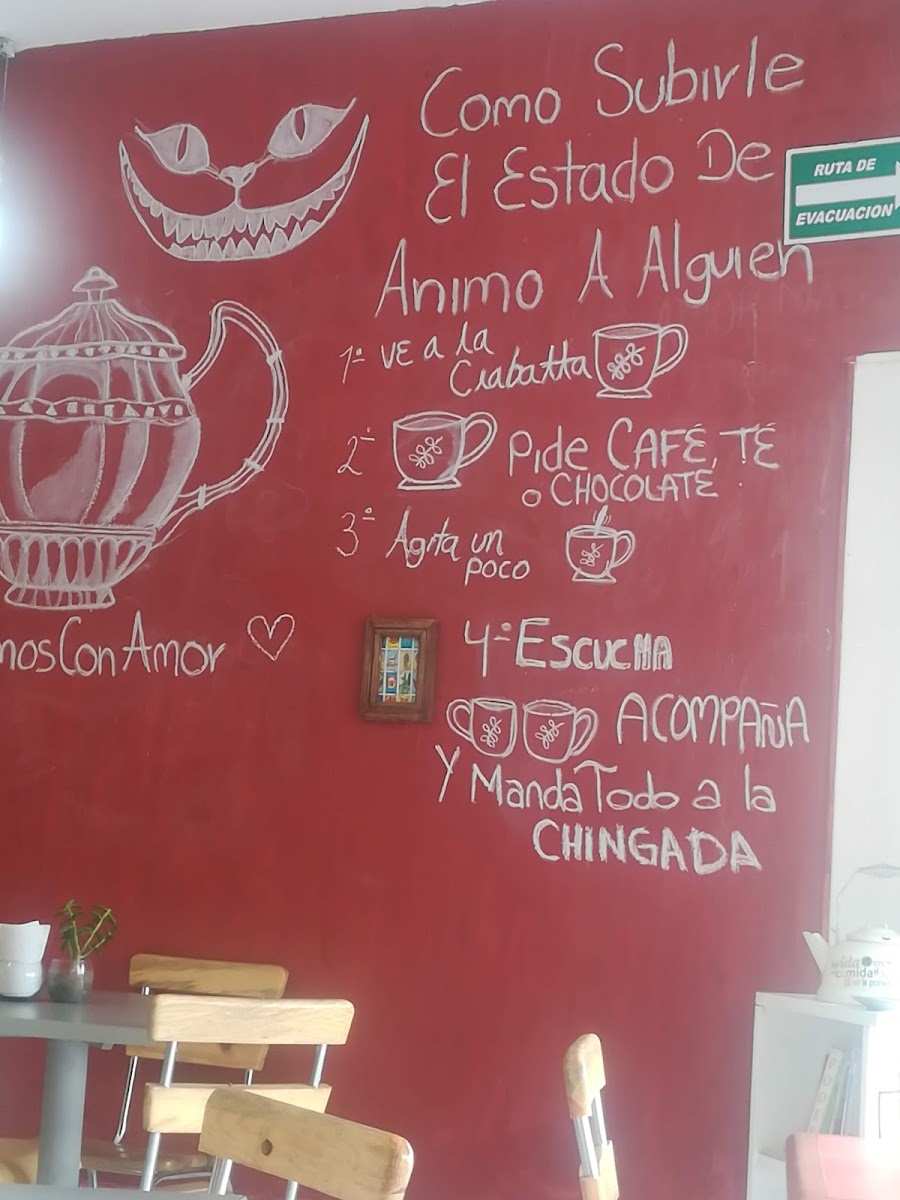 Como Subirle
El Estado De
Animo A Alguien
RUTA DE
EVACUACION
1º ve a la
Ciabatta
2º Pide CAFÉ, TÉ
o CHOCOLATE
3º Agita un
poco
4º Escucha
ACOMPAÑA
Y Manda Todo a la
CHINGADA
mosConAmor
comida